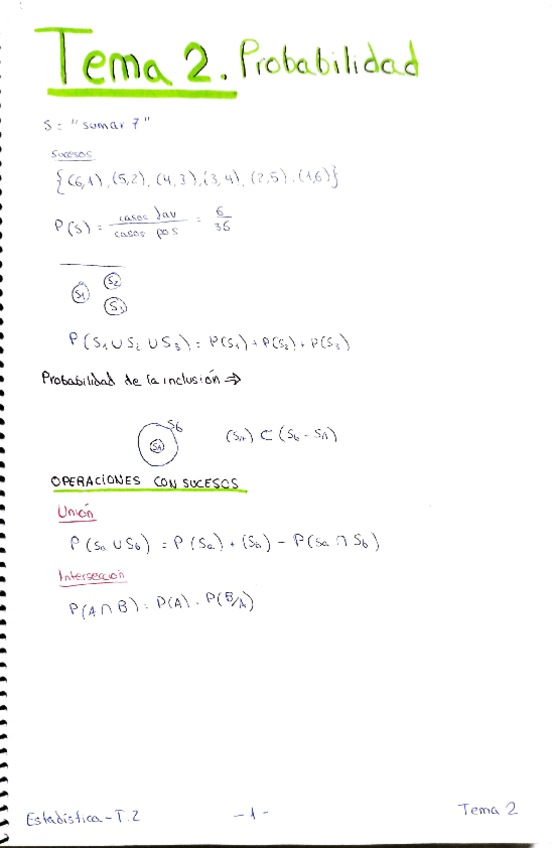 Tema 2. Probabilidad
S = "sumar 7"
Sucesos
{(6,1), (5,2), (4,3), (3,4), (2,5), (1,6)}
P(S) = casos fav / casos pos = 6/36
S1 S2 S3
P(S1 ∪ S2 ∪ S3) = P(S1) + P(S2) + P(S3)
Probabilidad de la inclusión ⇒
Sb
Sa
(Sa) ⊂ (Sb - Sa)
OPERACIONES CON SUCESOS
Unión
P(Sa ∪ Sb) = P(Sa) + (Sb) - P(Sa ∩ Sb)
Intersección
P(A ∩ B) = P(A) · P(B/A)
Estadística - T.2
- 1 -
Tema 2